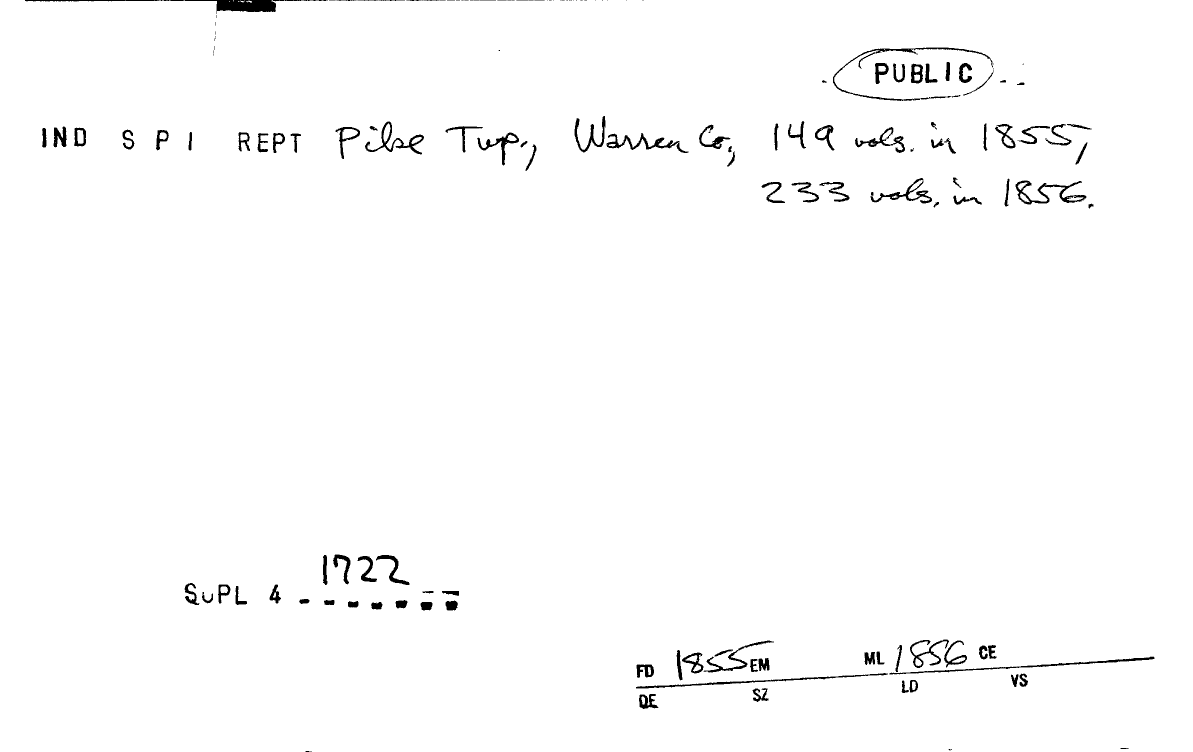 PUBLIC
IND S P I REPT Pike Twp., Warren Co., 149 vols. in 1855,
233 vols. in 1856.
1722
SUPL 4
FD 1855 EM ML 1856 CE
QE SZ LD VS